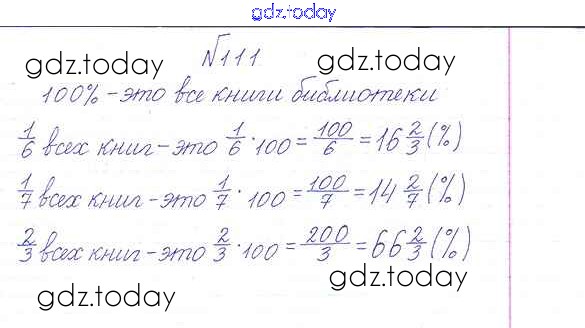 gdz.today
№111
gdz.today gdz.today
100% - это все книги библиотеки
1/6 всех книг - это 1/6 · 100 = 100/6 = 16 2/3 (%)
1/7 всех книг - это 1/7 · 100 = 100/7 = 14 2/7 (%)
2/3 всех книг - это 2/3 · 100 = 200/3 = 66 2/3 (%)
gdz.today gdz.today